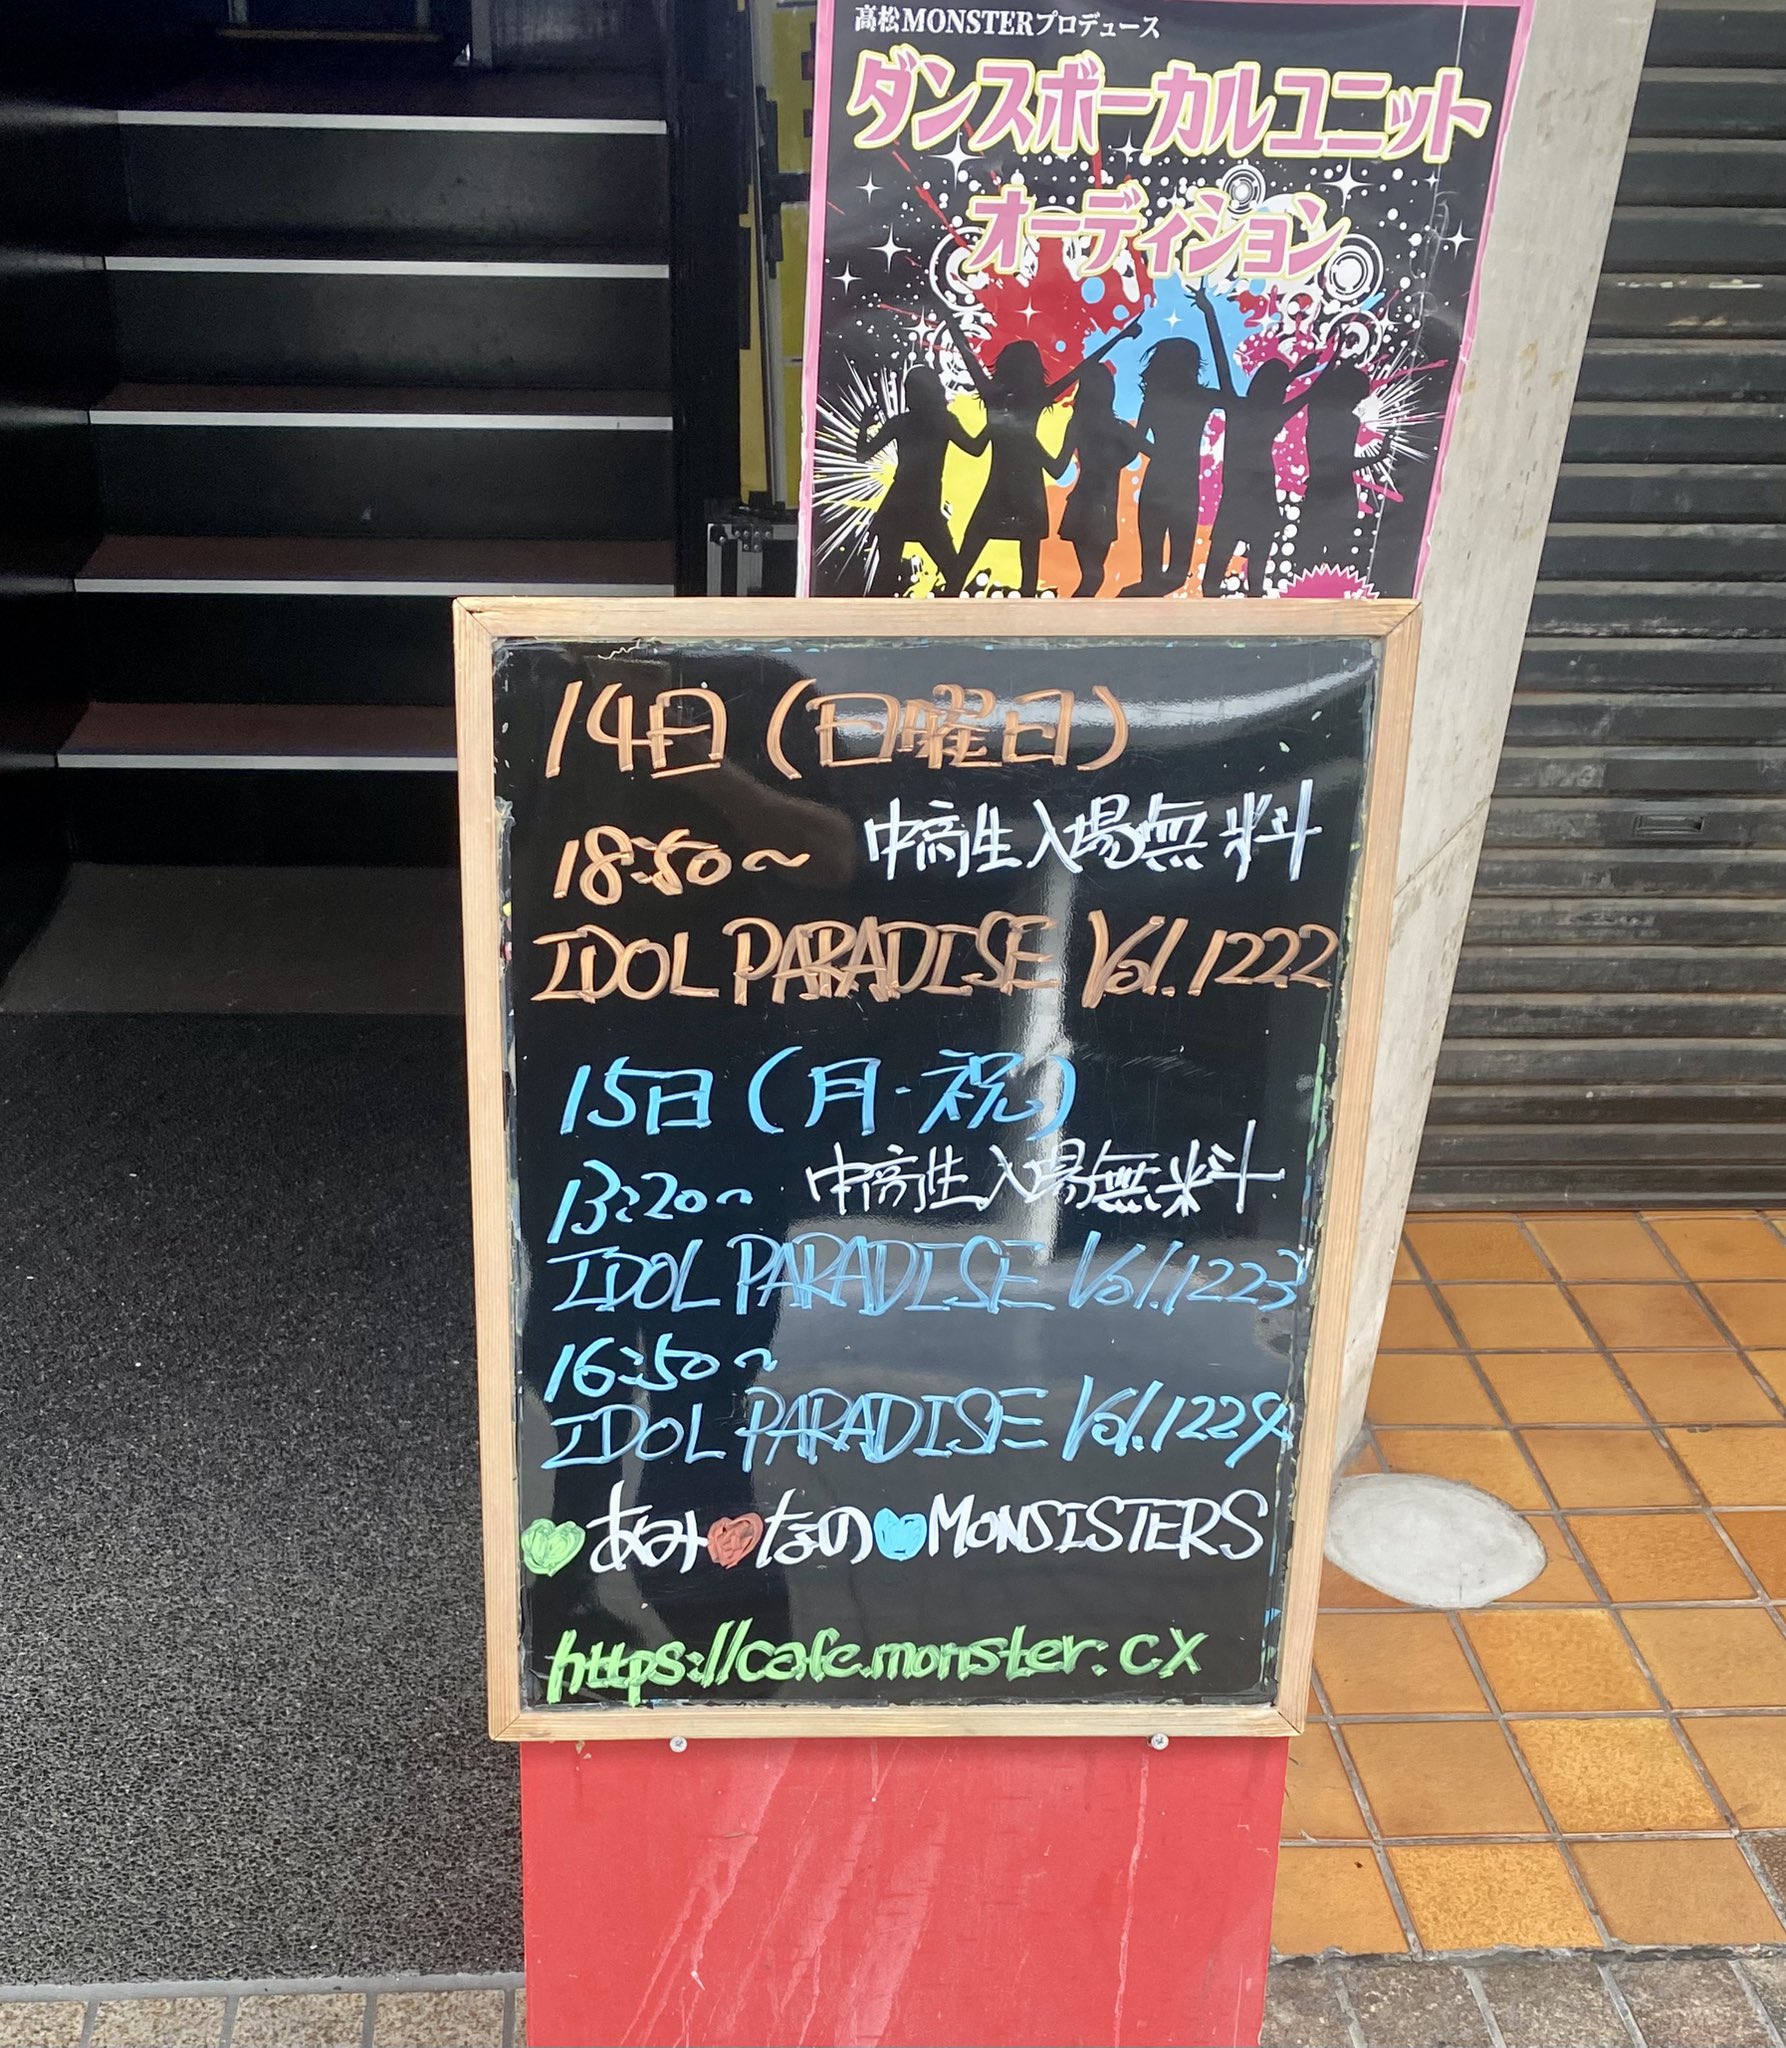 高松MONSTERプロデュース
ダンスボーカルユニット
オーディション
14日(日曜日)
18:50～ 中高生入場無料
IDOL PARADISE Vol.1222
15日(月・祝)
13:20～ 中高生入場無料
IDOL PARADISE Vol.1223
16:50～
IDOL PARADISE Vol.1224
💚あみ❤なの💙MONSISTERS
https://cafe.monster.cx